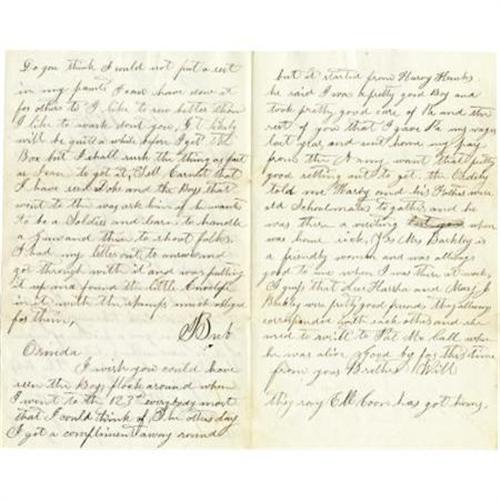 Do you think I would not put a set
in my pants I can have done it
for others to I like to sew better than
I like to work dont you, It likely
will be quite a while before I get the
Box but I shall rush the thing as fast
as I can to get it, Tell Earnest that
I have seen Loke and the Boys that
went to the war ask him if he wants
to be a Soldier and learn to handle
a Gun and then to shoot folks.
I had my letter out to answer and
got through with it and was putting
it up and found the little Envelope
in it with the stamps much obliged
for them,
Bub
Ormeda
I wish you could have
seen the boys flock around when
I went to the 127th everybody most
that I could think of, The other day
I got a compliment away round
but it started from Harvy Hanks.
he said I was a pretty good Boy and
took pretty good care of Pa and the
rest of you that I gave Pa my wages
last year and sent home my pay
from the Army want that pretty
good setting out to get. the
told me Marby and his Father were
old Schoolmates together and he
was there a visiting when
was home sick, Yes Mrs Barkley is
a friendly woman and was always
good to me when I was there at work,
I guess that and Mary J
Barkley were pretty good friends they always
corresponded with each other and she
used to write to Pat Mc Call when
he was alive Good by for this time
from your Brother Will
they say Ell Coon has got home.